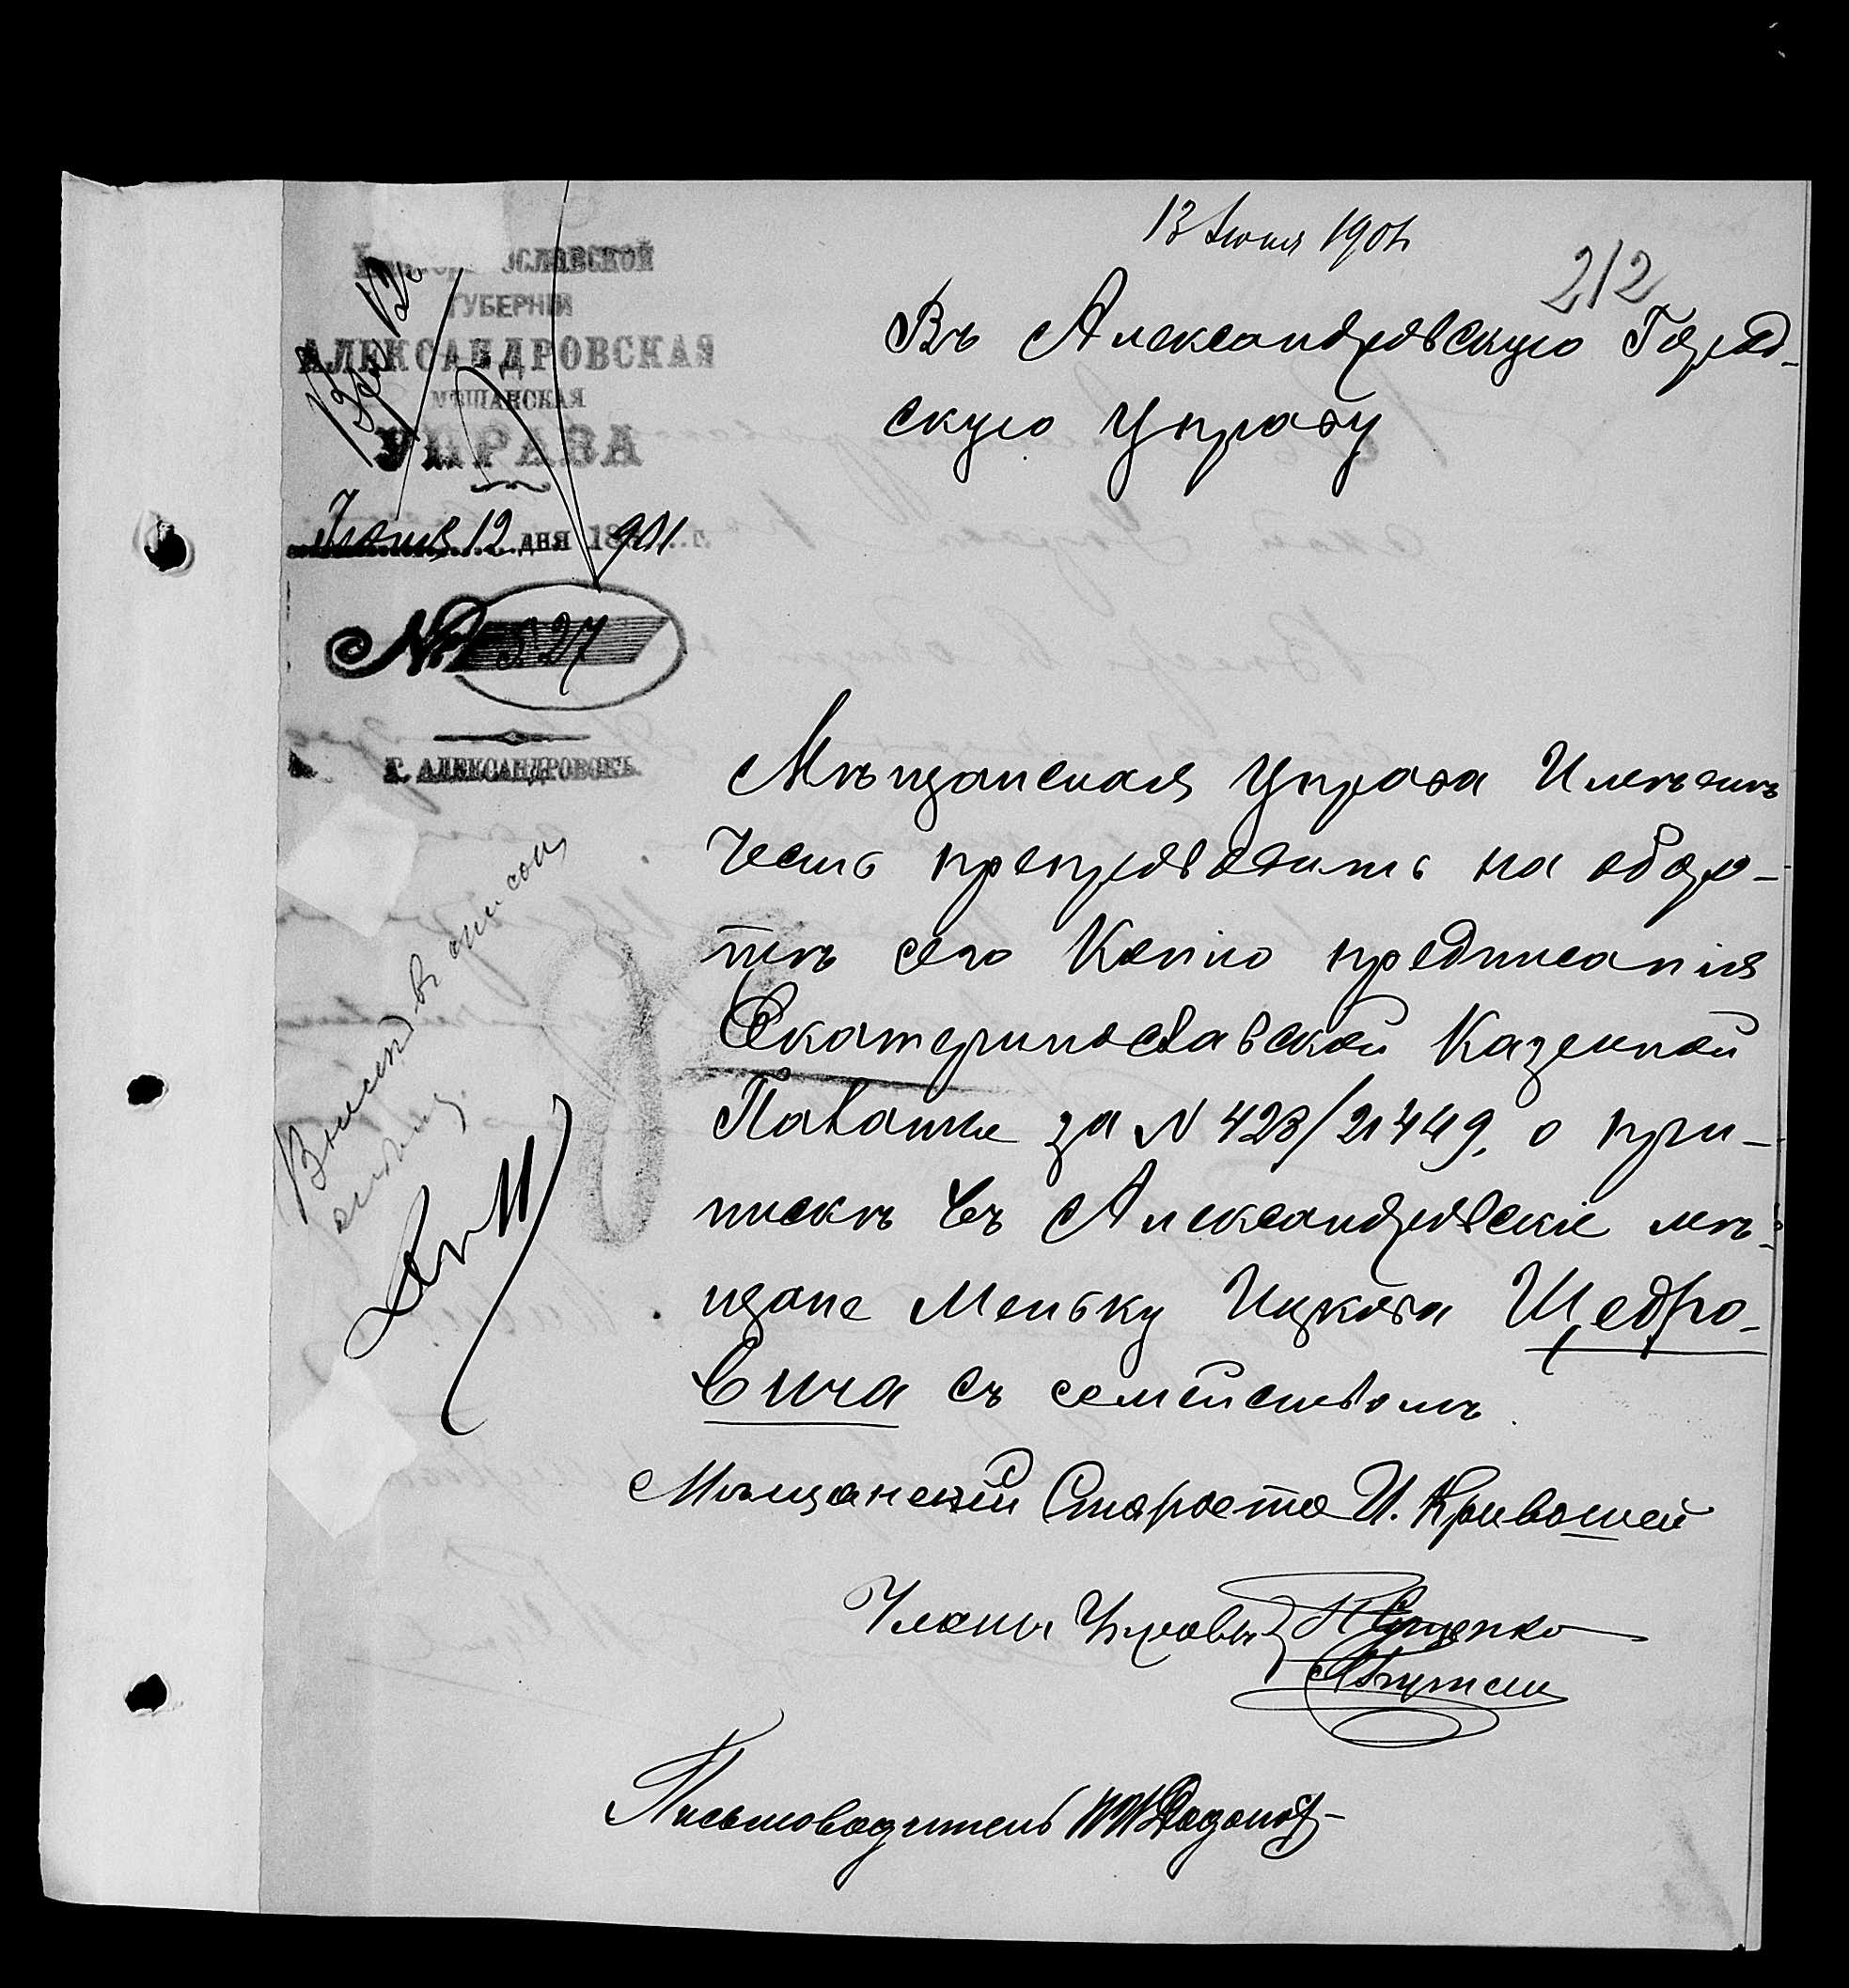 13 Іюня 1901
212
ОСЛАВСКОЙ
ГУБЕРНІИ
АЛЕКСАНДРОВСКАЯ
МѢЩАНСКАЯ
УПРАВА
Іюня 12 дня 1901 г.
№ 527
Г. АЛЕКСАНДРОВСКЪ.
Въ Александровскую Город-
скую Управу
Мѣщанская Управа Имѣетъ
Честь препроводить на оборо-
тѣ сего Копію предписанія
Екатеринославской Казенной
Палаты за N 428/21449, о при-
пискѣ въ Александровскіе мѣ-
щане Меньку Ицкова Щедро-
вича съ семействомъ.
въ списокъ
Мѣщанскій Староста И. Кривошей
Члены Управы
Письмоводитель